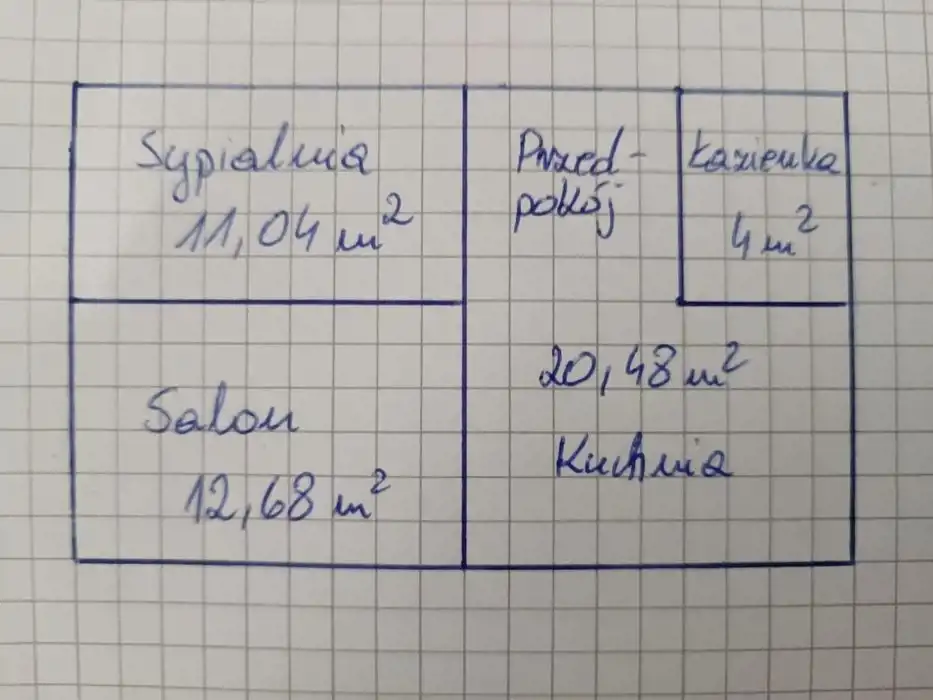 Sypialnia
11,04 m²
Przed-
pokój
Łazienka
4 m²
Salon
12,68 m²
20,48 m²
Kuchnia